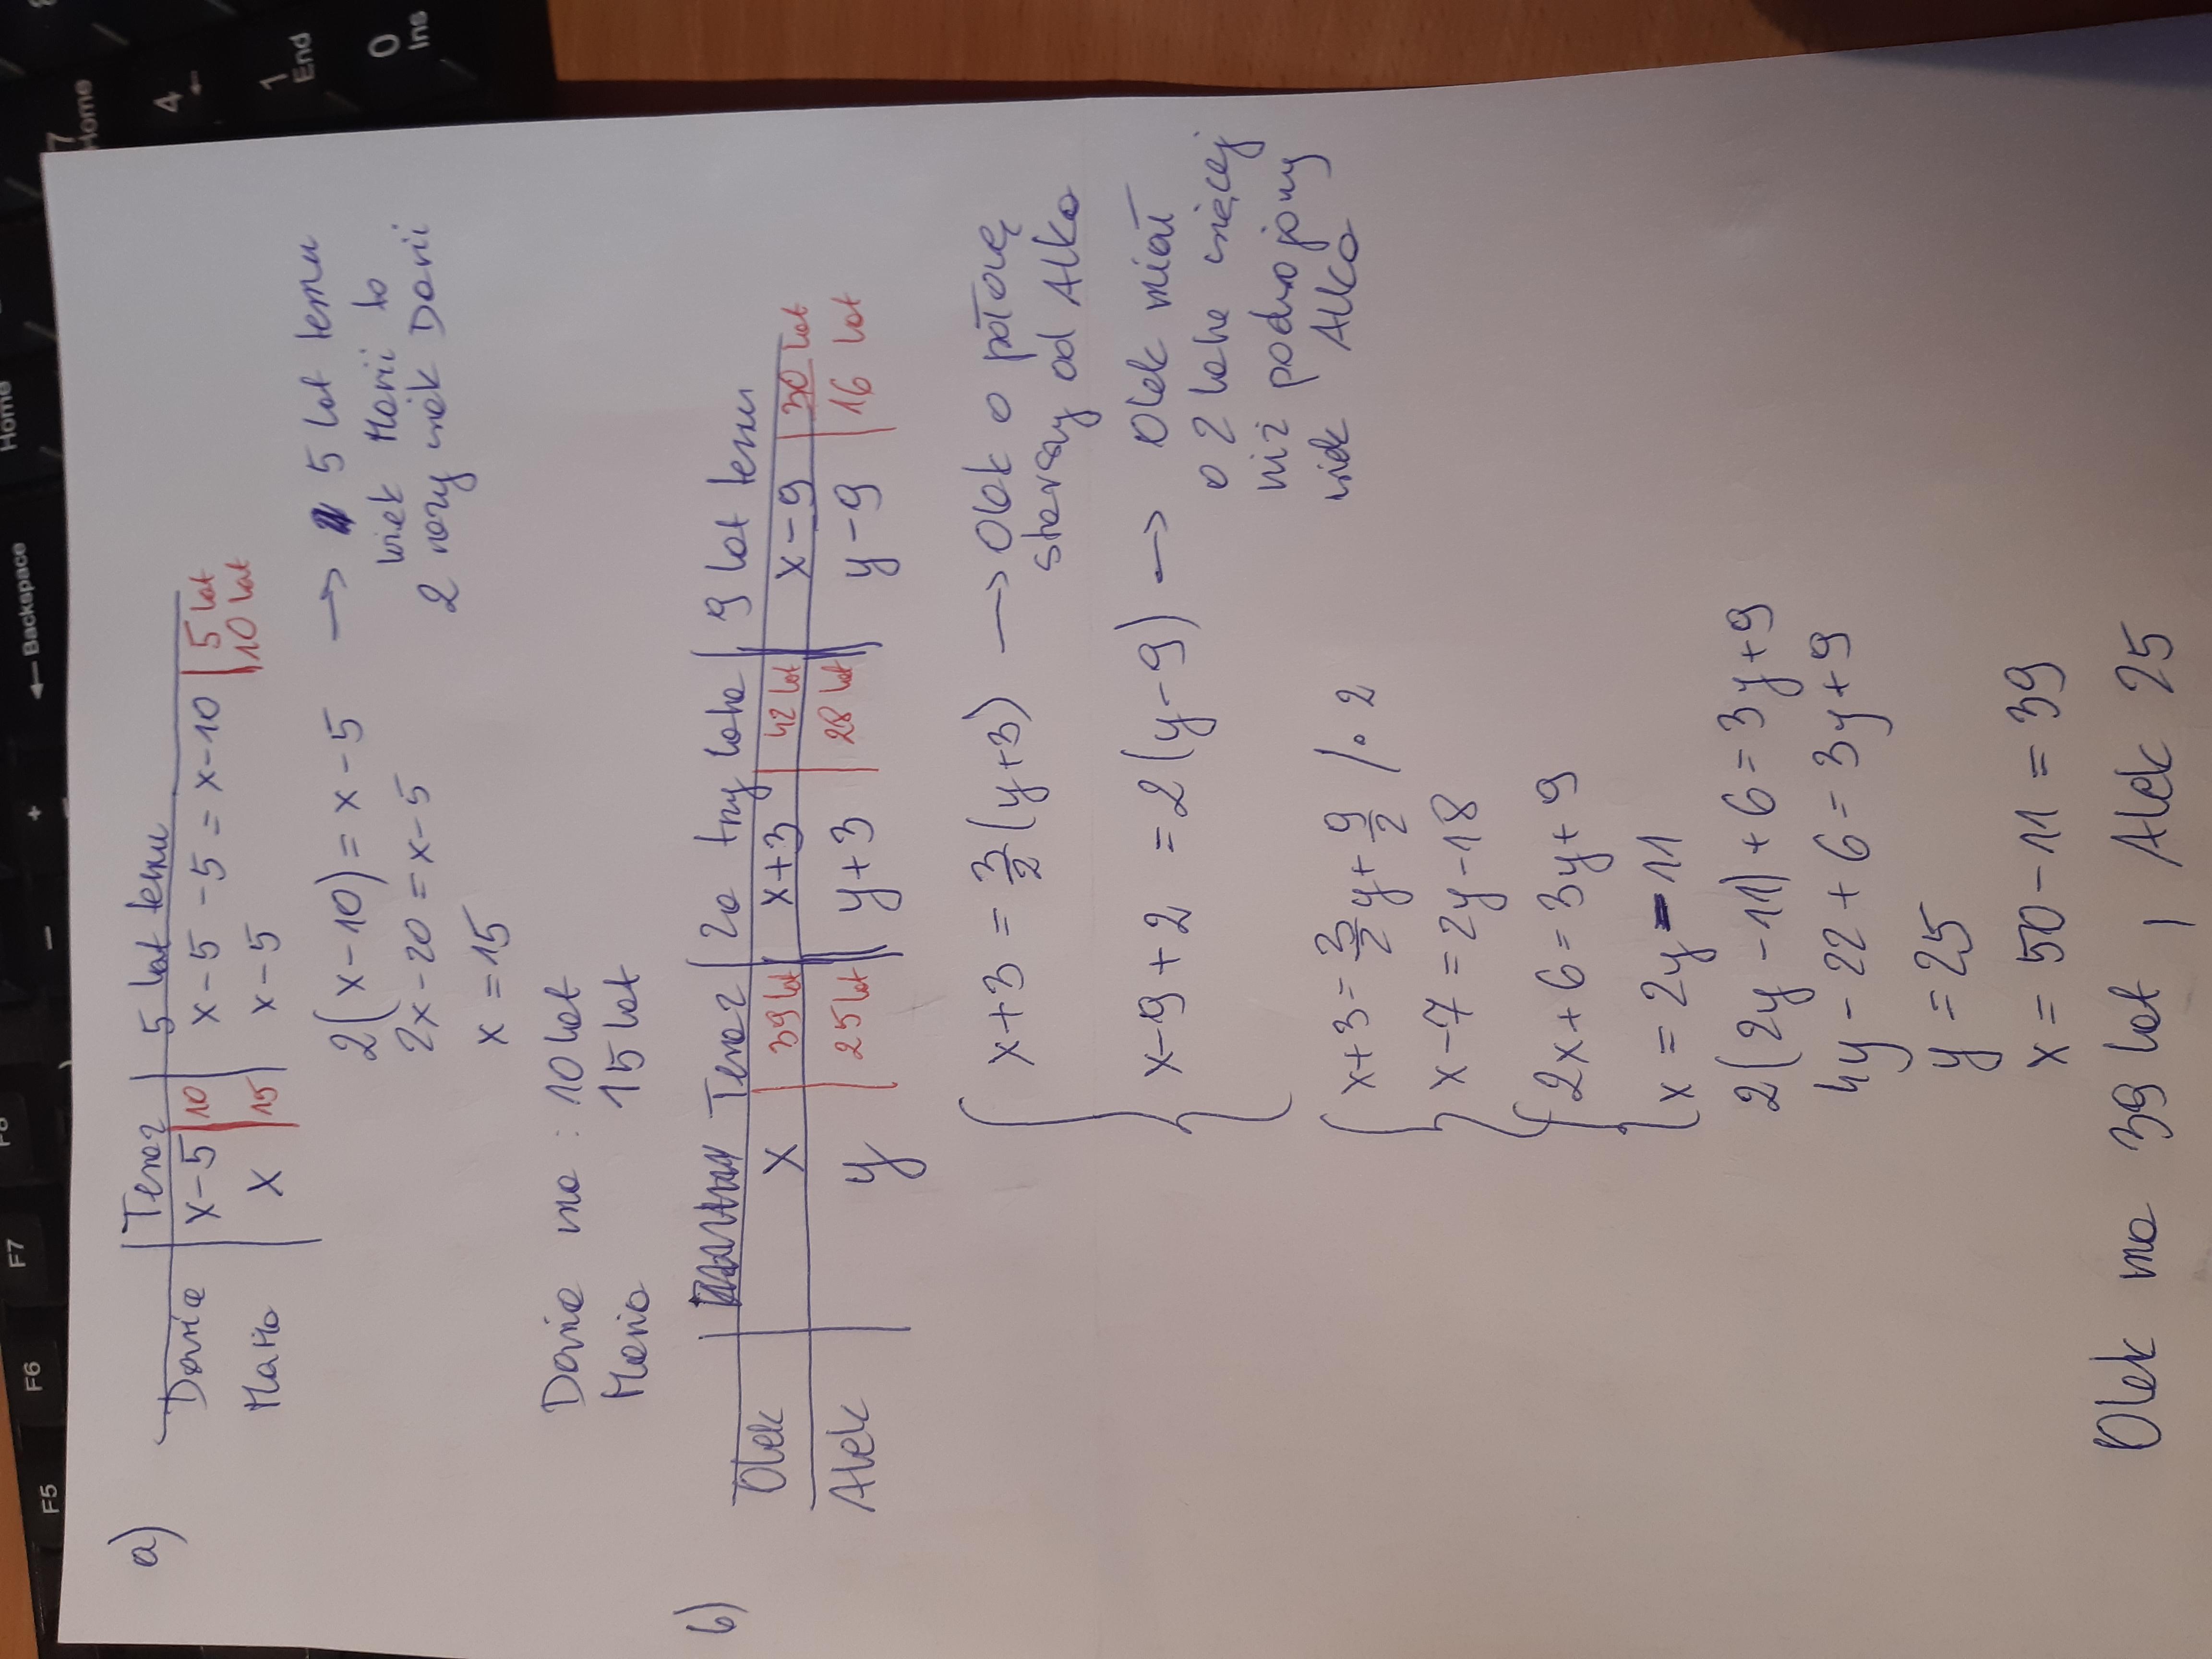 a)
Teraz | 5 lat temu
Daria | x-5 | 10 | x-5-5 = x-10 | 5 lat
Maria | x | 15 | x-5 | 10 lat
2(x-10) = x-5 → 5 lat temu
wiek Marii to
2 razy wiek Darii
2x-20 = x-5
x = 15
Daria ma : 10 lat
Maria 15 lat
b)
Teraz | za trzy lata | 9 lat temu
Olek | x | 39 lat | x+3 | 42 lat | x-9 | 30 lat
Alek | y | 25 lat | y+3 | 28 lat | y-9 | 16 lat
{ x+3 = 3/2 (y+3) → Olek o połowę
starszy od Alka
x-9+2 = 2(y-9) → Olek miał
o 2 lata więcej
niż podwojony
wiek Alka
{ x+3 = 3/2 y + 9/2 /·2
x-7 = 2y-18
{ 2x+6 = 3y+9
x = 2y-11
2(2y-11)+6 = 3y+9
4y-22+6 = 3y+9
y = 25
x = 50-11 = 39
Olek ma 39 lat, Alek 25
Home
7 Home
4 ←
1 End
0 Ins
← Backspace
+
-
F7
F6
F5